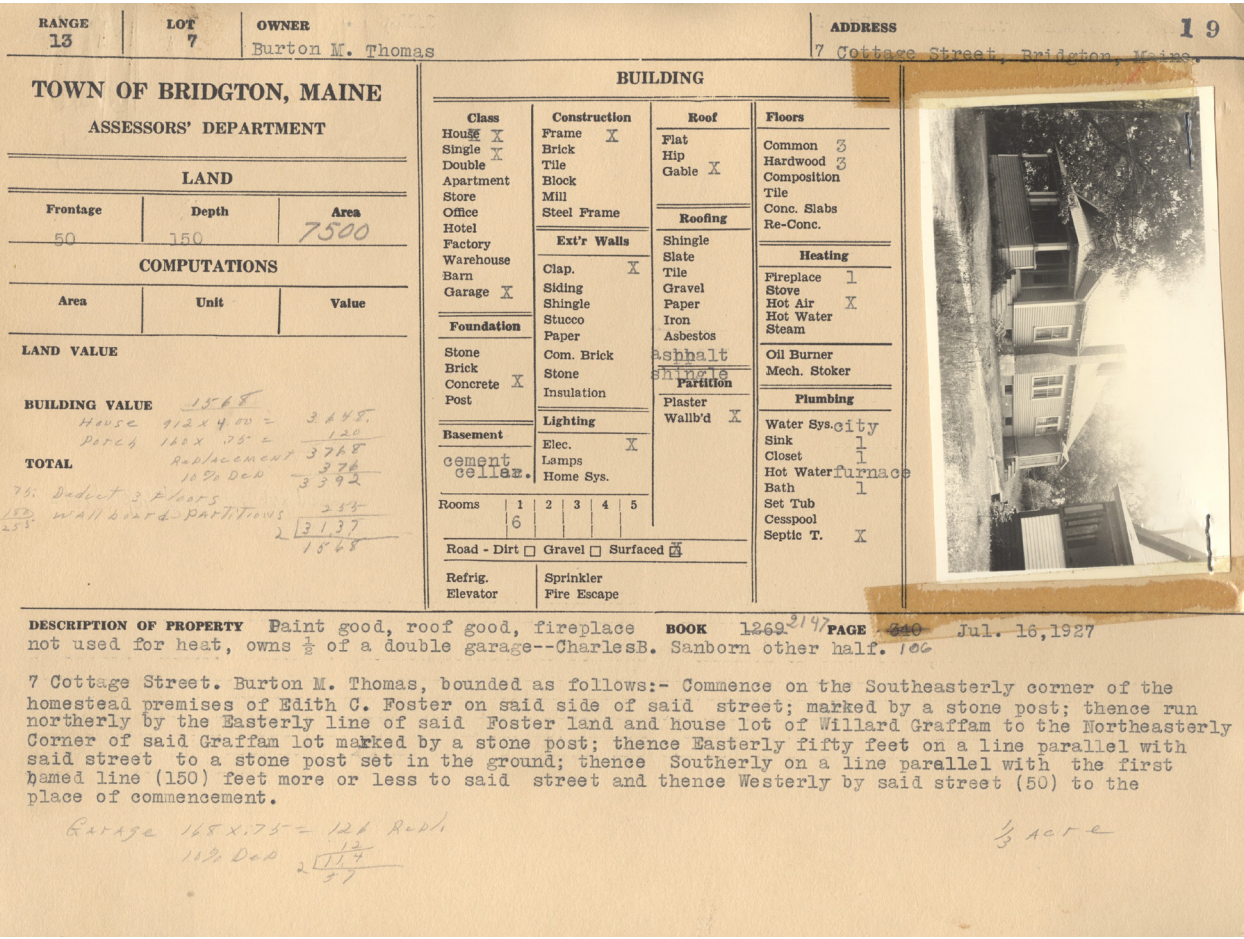 RANGE 13 LOT 7 OWNER Burton M. Thomas ADDRESS 7 Cottage Street, Bridgton, Maine. 19
TOWN OF BRIDGTON, MAINE
ASSESSORS' DEPARTMENT
LAND
Frontage Depth Area
50 150 7500
COMPUTATIONS
Area Unit Value
LAND VALUE
BUILDING VALUE 1568
House 912 x 4.00 = 3648.
Porch 160 x .75 = 120
Replacement 3768
TOTAL 10% Dep 376
3392
75. Deduct 3 Floors
150 Wallboard Partitions 255
255 2 3137
1568
BUILDING
Class
House X
Single X
Double
Apartment
Store
Office
Hotel
Factory
Warehouse
Barn
Garage X
Foundation
Stone
Brick
Concrete X
Post
Basement
cement
cellar.
Construction
Frame X
Brick
Tile
Block
Mill
Steel Frame
Ext'r Walls
Clap. X
Siding
Shingle
Stucco
Paper
Com. Brick
Stone
Insulation
Lighting
Elec. X
Lamps
Home Sys.
Rooms 1 2 3 4 5
6
Road - Dirt Gravel Surfaced X
Refrig. Sprinkler
Elevator Fire Escape
Roof
Flat
Hip
Gable X
Roofing
Shingle
Slate
Tile
Gravel
Paper
Iron
Asbestos
asphalt
shingle
Partition
Plaster
Wallb'd X
Floors
Common 3
Hardwood 3
Composition
Tile
Conc. Slabs
Re-Conc.
Heating
Fireplace 1
Stove
Hot Air X
Hot Water
Steam
Oil Burner
Mech. Stoker
Plumbing
Water Sys. city
Sink 1
Closet 1
Hot Water furnace
Bath 1
Set Tub
Cesspool
Septic T. X
DESCRIPTION OF PROPERTY Paint good, roof good, fireplace BOOK 1269 2147 PAGE 340 Jul. 16,1927
not used for heat, owns ½ of a double garage--CharlesB. Sanborn other half. 106
7 Cottage Street. Burton M. Thomas, bounded as follows:- Commence on the Southeasterly corner of the
homestead premises of Edith C. Foster on said side of said street; marked by a stone post; thence run
northerly by the Easterly line of said Foster land and house lot of Willard Graffam to the Northeasterly
Corner of said Graffam lot marked by a stone post; thence Easterly fifty feet on a line parallel with
said street to a stone post set in the ground; thence Southerly on a line parallel with the first
named line (150) feet more or less to said street and thence Westerly by said street (50) to the
place of commencement.
Garage 168 x .75 = 126 Repl.
10% Dep 12
2 114
57
⅓ acre